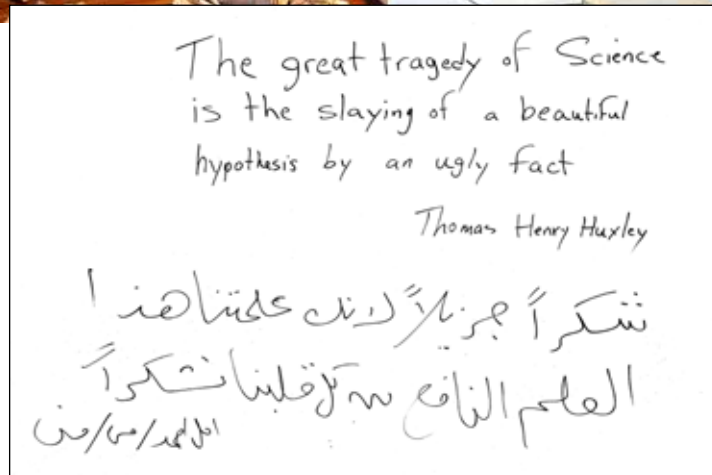 The great tragedy of Science
is the slaying of a beautiful
hypothesis by an ugly fact
Thomas Henry Huxley
شكراً جزيلاً لانك علمتنا هذا
العلم النافع من كل قلبنا شكراً